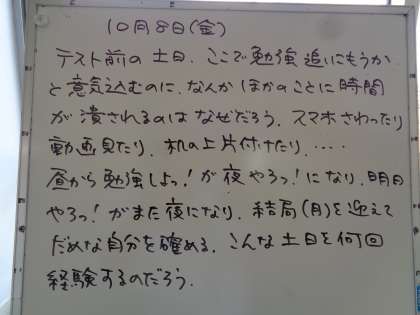 10月8日(金)
テスト前の土日、ここで勉強追いにもうか
と意気込むのに、なんかほかのことに時間
が潰されるのはなぜだろう。スマホさわったり
動画見たり、机の上片付けたり、‥‥
昼から勉強しよっ!が夜やろっ!になり、明日
やろっ!がまた夜になり、結局(月)を迎えて
だめな自分を確める。こんな土日を何回
経験するのだろう。